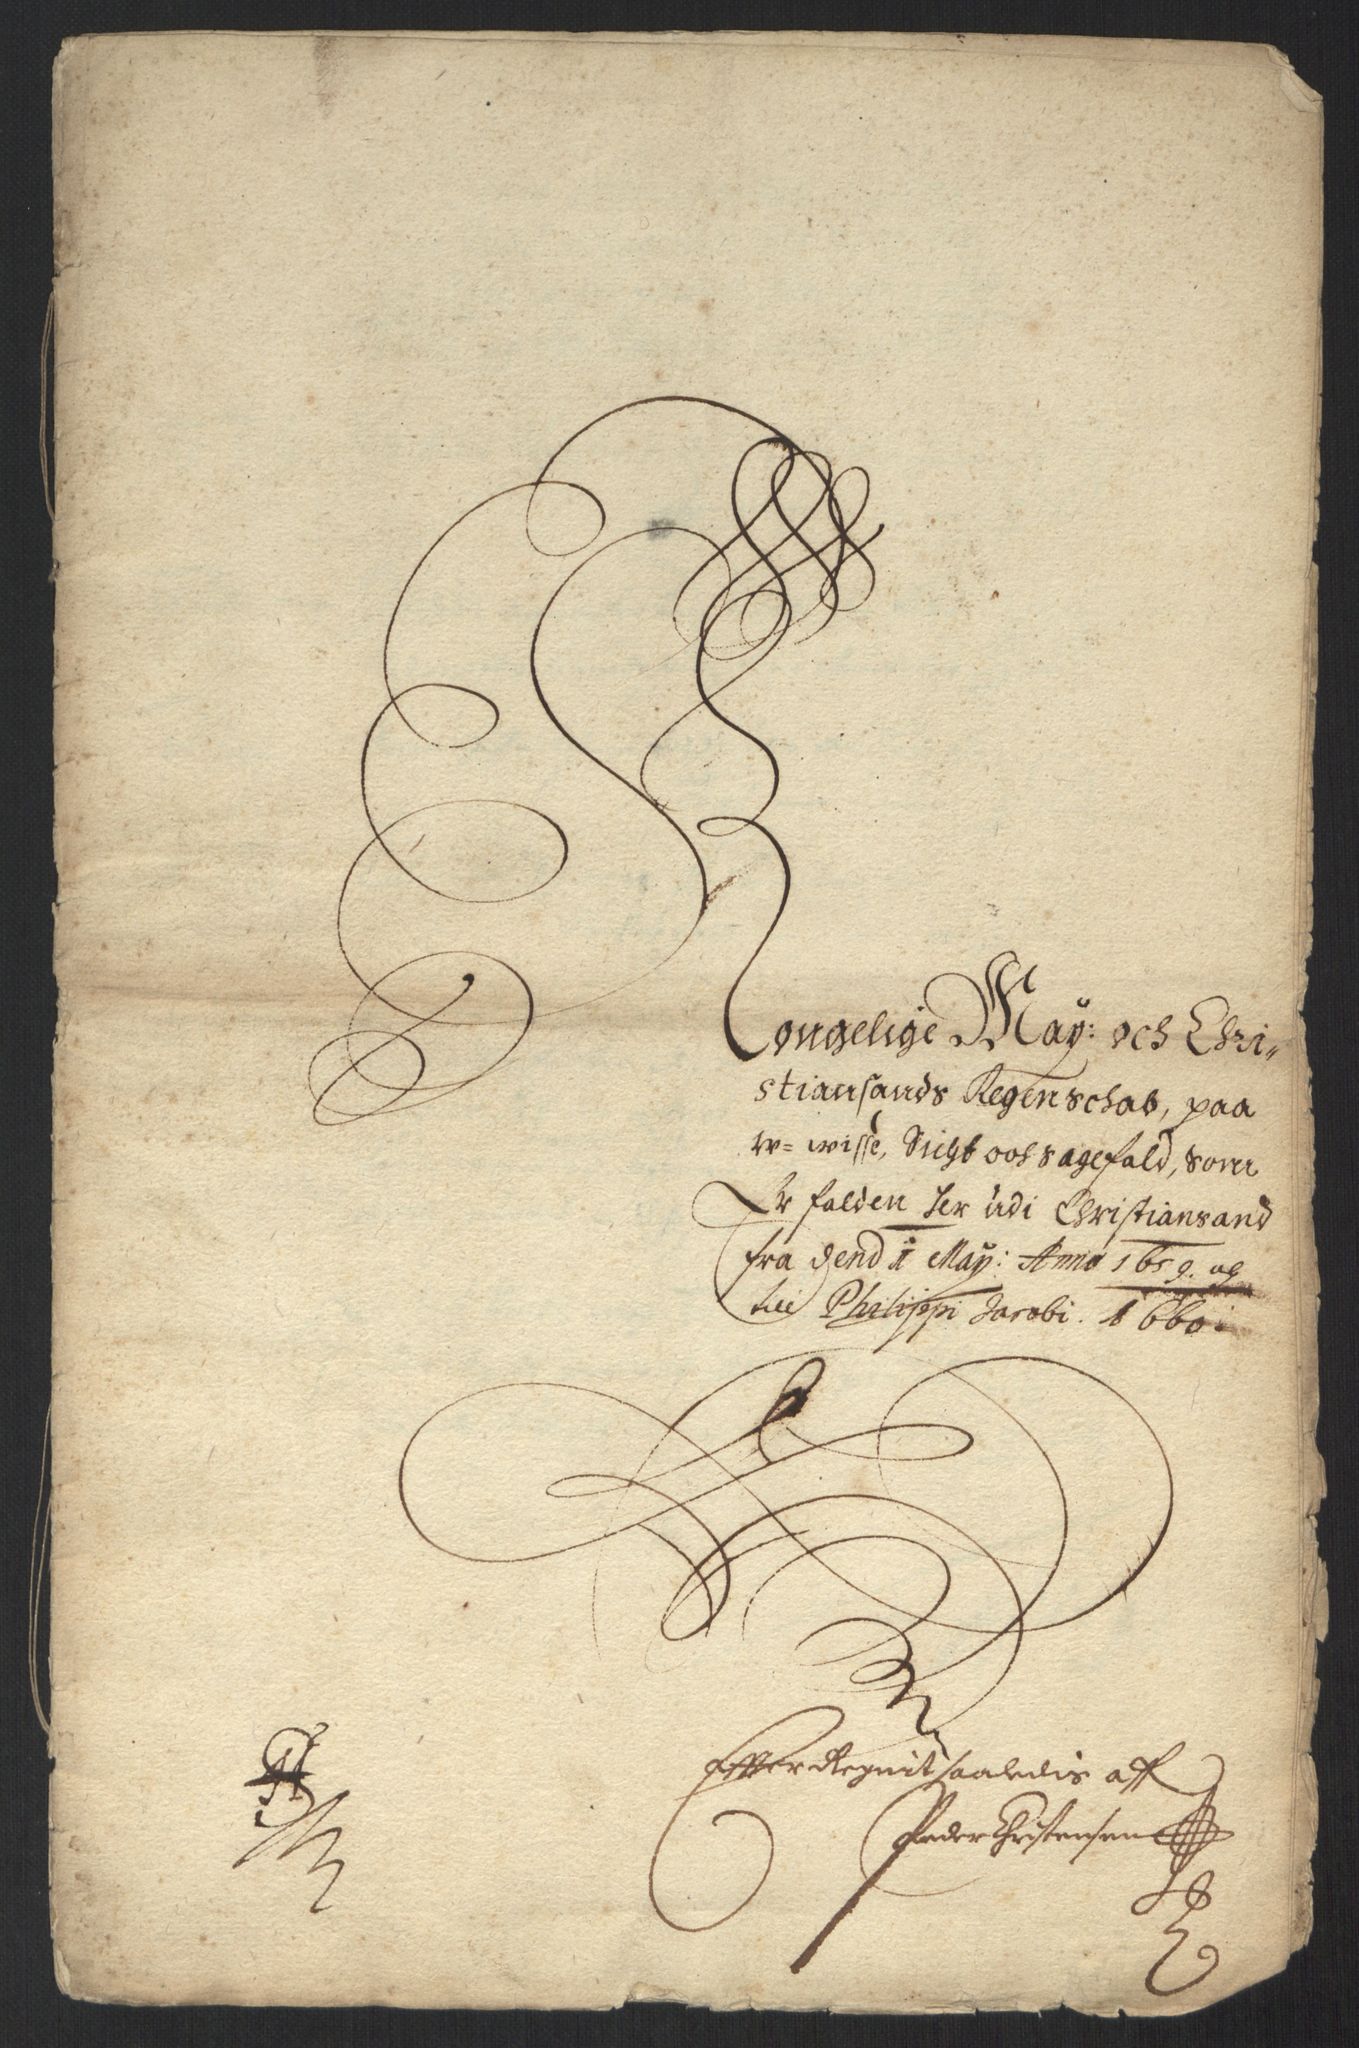 Kongelige May: och Chri-
stiansands Regenschab, paa
w= wisse, Sigt och sagefald, som
Er falden her udi Christiansand
fra dend 1 May: Anno 1659. og
till Philippi Jacobi. 1660.
Effter Regnit saaledis aff
Peder Christensen